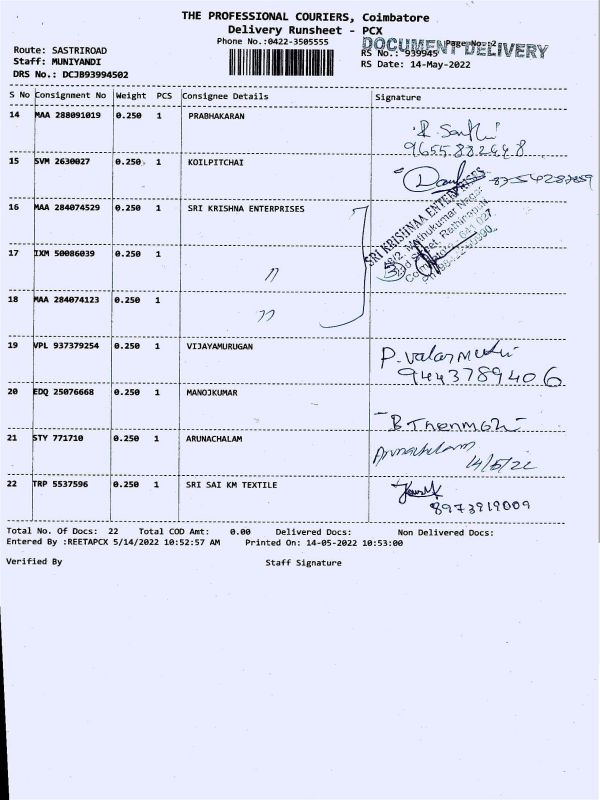 THE PROFESSIONAL COURIERS, Coimbatore
Delivery Runsheet - PCX
Phone No.:0422-3505555
DOCUMENT DELIVERY
Page No.:2
Route: SASTRIROAD
RS No.: 939945
Staff: MUNIYANDI
RS Date: 14-May-2022
DRS No.: DCJB93994502
S No Consignment No Weight PCS Consignee Details Signature
14 MAA 288091019 0.250 1 PRABHAKARAN
9655882448
15 SVM 2630027 0.250 1 KOILPITCHAI
16 MAA 284074529 0.250 1 SRI KRISHNA ENTERPRISES
SRI KRISHNAA ENTERPRISES
17 IXM 50086039 0.250 1 "
18 MAA 284074123 0.250 1 "
19 VPL 937379254 0.250 1 VIJAYAMURUGAN P. Valarmathi
9443789406
20 EDQ 25076668 0.250 1 MANOJKUMAR B Thenmozhi
21 STY 771710 0.250 1 ARUNACHALAM Arunachalam
14/5/22
22 TRP 5537596 0.250 1 SRI SAI KM TEXTILE
8973919009
Total No. Of Docs: 22 Total COD Amt: 0.00 Delivered Docs: Non Delivered Docs:
Entered By :REETAPCX 5/14/2022 10:52:57 AM Printed On: 14-05-2022 10:53:00
Verified By Staff Signature